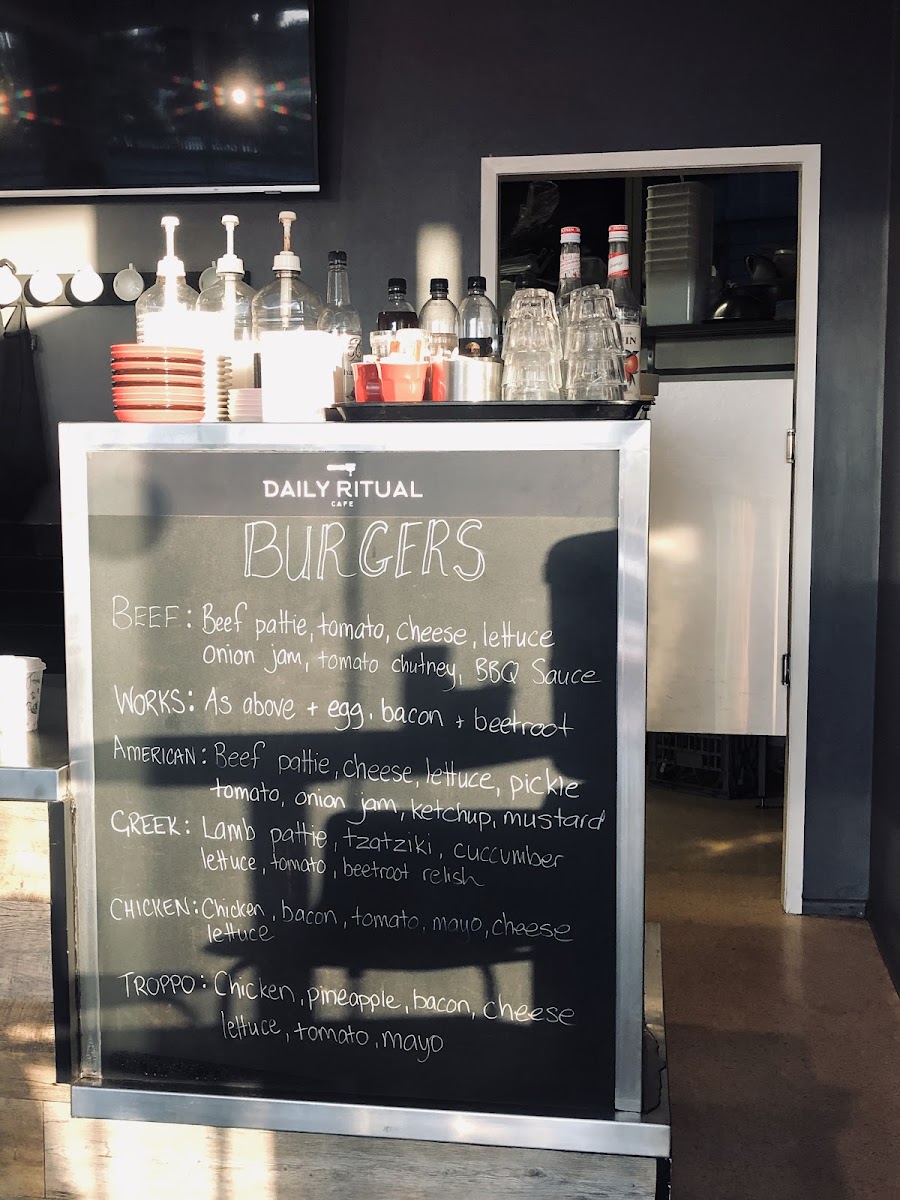 DAILY RITUAL
CAFE
BURGERS
BEEF: Beef pattie, tomato, cheese, lettuce
onion jam, tomato chutney, BBQ Sauce
WORKS: As above + egg, bacon + beetroot
AMERICAN: Beef pattie, cheese, lettuce, pickle
tomato, onion jam, ketchup, mustard
GREEK: Lamb pattie, tzatziki, cuccumber
lettuce, tomato, beetroot relish
CHICKEN: Chicken, bacon, tomato, mayo, cheese
lettuce
TROPPO: Chicken, pineapple, bacon, cheese
lettuce, tomato, mayo